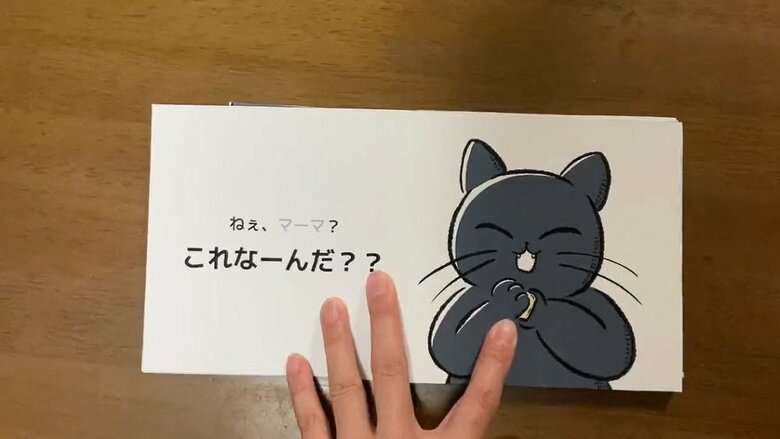 ねぇ、マーマ？
これなーんだ？？